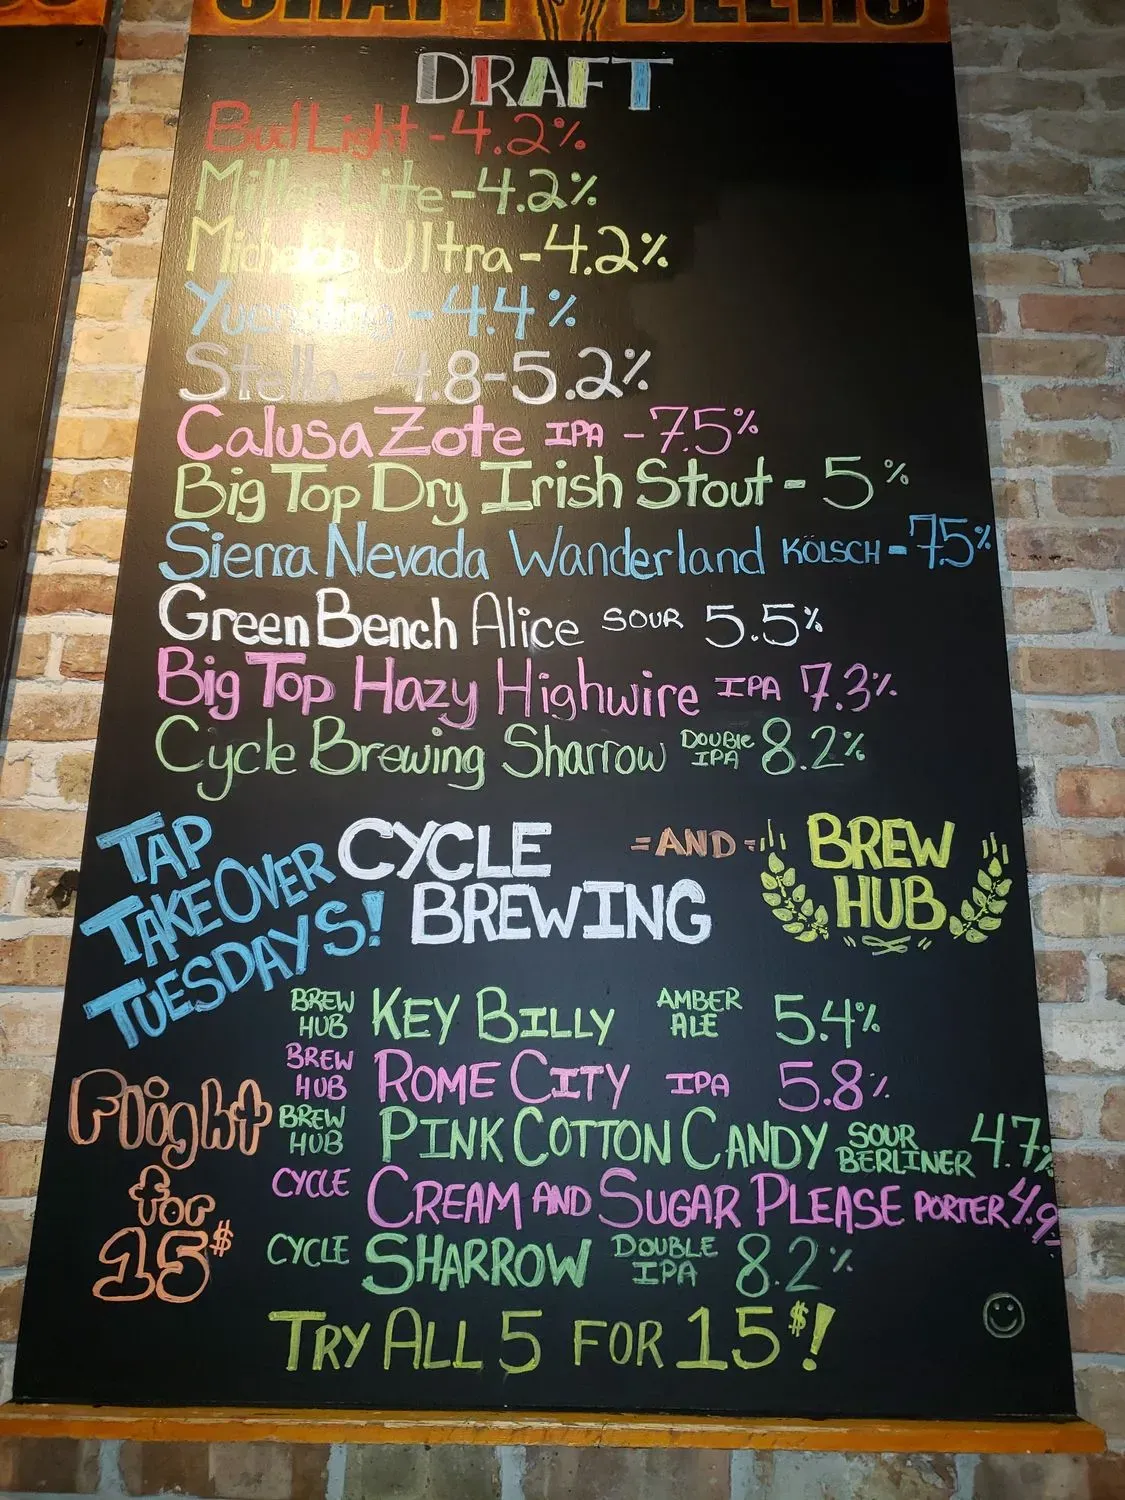 CRAFT BEERS
DRAFT
Bud Light - 4.2%
Miller Lite - 4.2%
Michelob Ultra - 4.2%
Yuengling - 4.4%
Stella - 4.8-5.2%
Calusa Zote IPA - 7.5%
Big Top Dry Irish Stout - 5%
Sierra Nevada Wanderland KÖLSCH - 7.5%
Green Bench Alice SOUR 5.5%
Big Top Hazy Highwire IPA 7.3%
Cycle Brewing Sharrow DOUBLE IPA 8.2%
TAP TAKEOVER TUESDAYS!
CYCLE BREWING
=AND=
BREW HUB
BREW HUB KEY BILLY AMBER ALE 5.4%
BREW HUB ROME CITY IPA 5.8%
BREW HUB PINK COTTON CANDY SOUR BERLINER 4.7%
CYCLE CREAM AND SUGAR PLEASE PORTER 4.9%
CYCLE SHARROW DOUBLE IPA 8.2%
Flight for 15$
TRY ALL 5 FOR 15$!